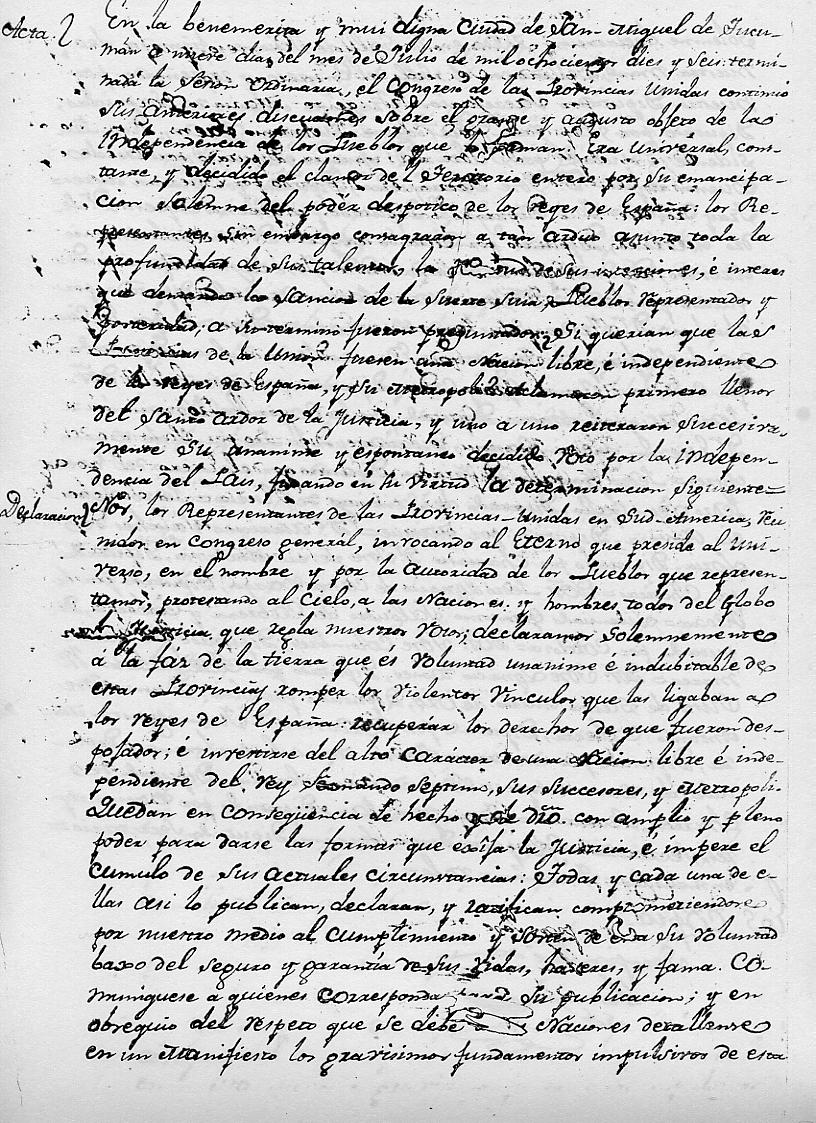 Acta.
En la benemerita y mui digna Ciudad de San Miguel de Tucu-
man a nueve dias del mes de Julio de mil ochocientos dies y seis: termi-
nada la Sesion ordinaria, el Congreso de las Provincias Unidas continuó
sus anteriores discusiones sobre el grande y augusto objeto de la
Independencia de los Pueblos que lo forman. Era universal, cons-
tante, y decidido el clamor del Territorio entero por su emancipa-
cion solemne del poder despotico de los reyes de España: los Re-
presentantes sin embargo consagraron a tan arduo asunto toda la
profundidad de sus talentos, la rectitud de sus intenciones, é interes
que demanda la Sancion de la Suerte suia, Pueblos representados y
posteridad; a su termino fueron preguntados: Si querian que las
Provincias de la Union fuesen una Nacion libre, é independiente
de los reyes de España, y su Metropoli? Aclamaron primero llenos
del Santo ardor de la Justicia, y uno a uno reiteraron succesiva-
mente su unanime y espontaneo decidido Voto por la indepen-
dencia del Pais, fixando en su virtud la determinacion siguiente
Declaracion
Nos, los Representantes de las Provincias-Unidas en Sud-America, reu-
nidos en Congreso general, invocando al Eterno que preside al uni-
verso, en el nombre y por la autoridad de los Pueblos que represen-
tamos, protestando al Cielo, a las Naciones, y hombres todos del Globo
la Justicia, que regla nuestros Votos; declaramos solemnemente
á la fáz de la tierra que és voluntad unanime é indubitable de
estas Provincias romper los violentos Vinculos que las ligaban a
los reyes de España: recuperar los derechos de que fueron des-
pojados; é investirse del alto carácter de una Nacion libre é inde-
pendiente del rey Fernando Septimo, sus succesores, y Metropoli.
Quedan en conseqüencia de hecho y de dro. con amplio y pleno
poder para darse las formas que exija la Justicia, é impere el
cumulo de sus actuales circunstancias: Todas y cada una de e-
llas asi lo publican, declaran, y ratifican comprometiendose
por nuestro medio al cumplimiento y sosten de esta su voluntad
baxo del seguro y garantía de sus vidas, haveres, y fama. Co-
muniquese a quienes corresponda su publicacion; y en
obsequio del respeto que se debe Naciones detallense
en un Manifiesto los gravisimos fundamentos impulsivos de esta